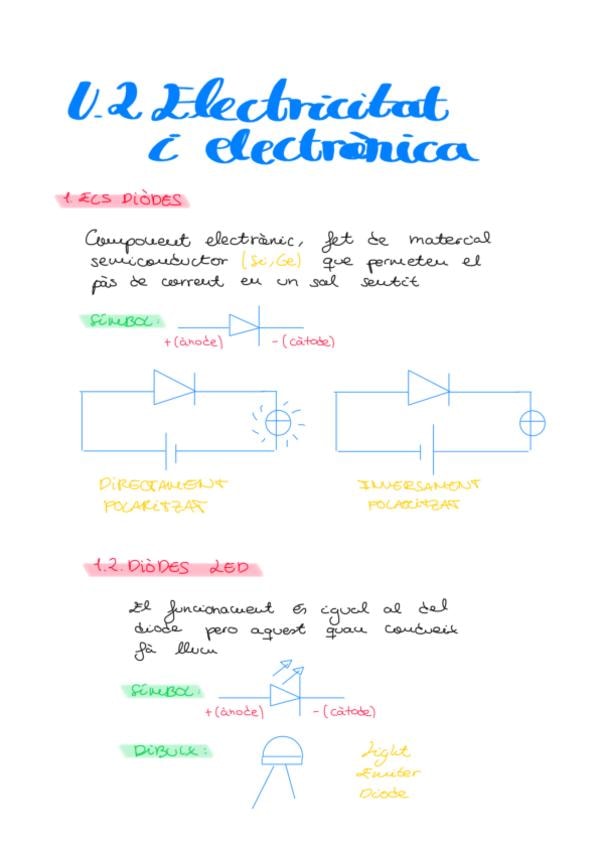 U.2 Electricitat
i electrònica
1. ELS DIÒDES
Component electrònic, fet de material
semiconductor (Si, Ge) que permeteu el
pàs de corrent en un sol sentit
SÍMBOL:
+(ànode) -(càtode)
DIRECTAMENT
POLARITZAT
INVERSAMENT
POLARITZAT
1.2. DIÒDES LED
El funcionament és igual al del
diode pero aquest quan condueix
fà llum
SÍMBOL:
+(ànode) -(càtode)
DIBUIX:
Light
Emiter
Diode